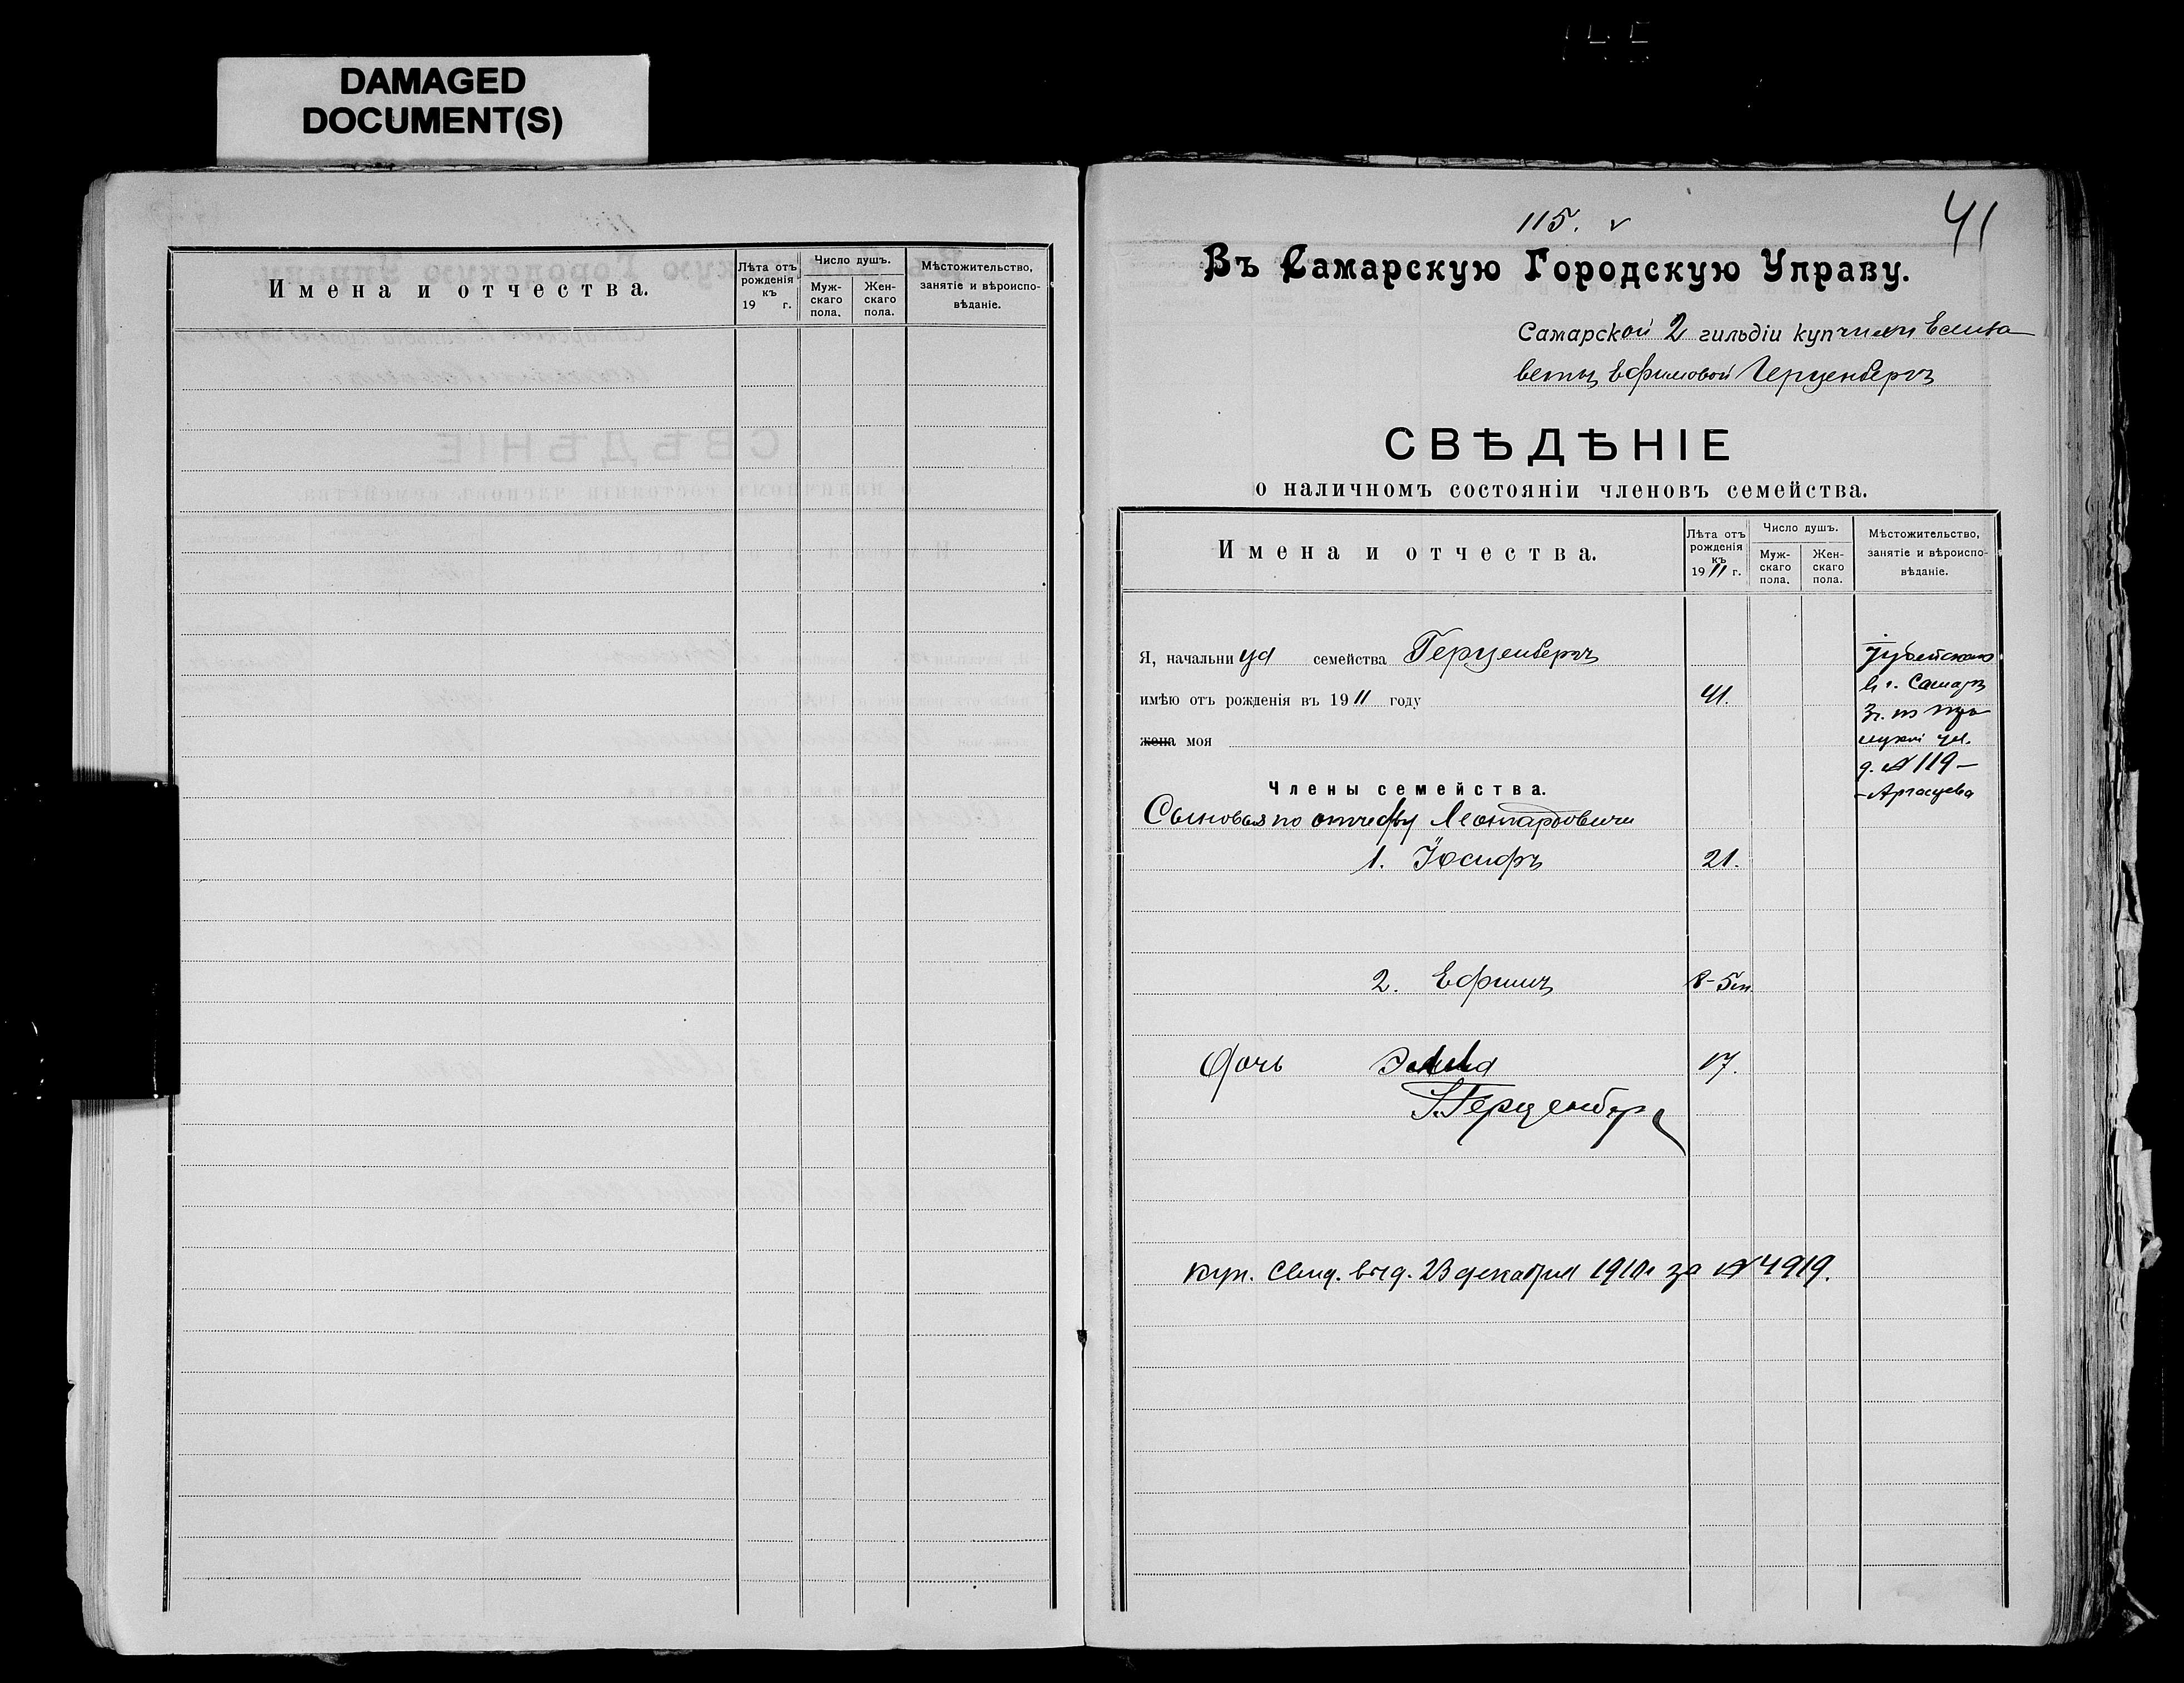 DAMAGED
DOCUMENT(S)
Имена и отчества.
Лѣта отъ рожденія къ 19 г.
Число душъ.
Муж-скаго пола.
Жен-скаго пола.
Мѣстожительство, занятіе и вѣроиспо-вѣданіе.
115. v
41
Въ Самарскую Городскую Управу.
Самарской 2 гильдіи купчихи Елиза
веты Ефимовой Герценбергъ
СВѢДѢНІЕ
о наличномъ состояніи членовъ семейства.
Имена и отчества.
Лѣта отъ рожденія къ 1911 г.
Число душъ.
Муж-скаго пола.
Жен-скаго пола.
Мѣстожительство, занятіе и вѣроиспо-вѣданіе.
Я, начальница семейства Герценбергъ
имѣю отъ рожденія въ 1911 году 41.
жена моя
Іудейскаго
въ г. Самарѣ
ул.
д. № 119 –
Члены семейства.
Сыновья по отчеству Леонардовичи
1. Іосифъ 21.
2. Ефимъ 8-5м.
Дочь 17.
Герценбергъ
куп. свид. выд. 23 декабря 1910г за № 4919.